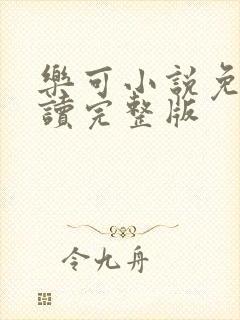 樂可小說免
讀完整版
令九舟